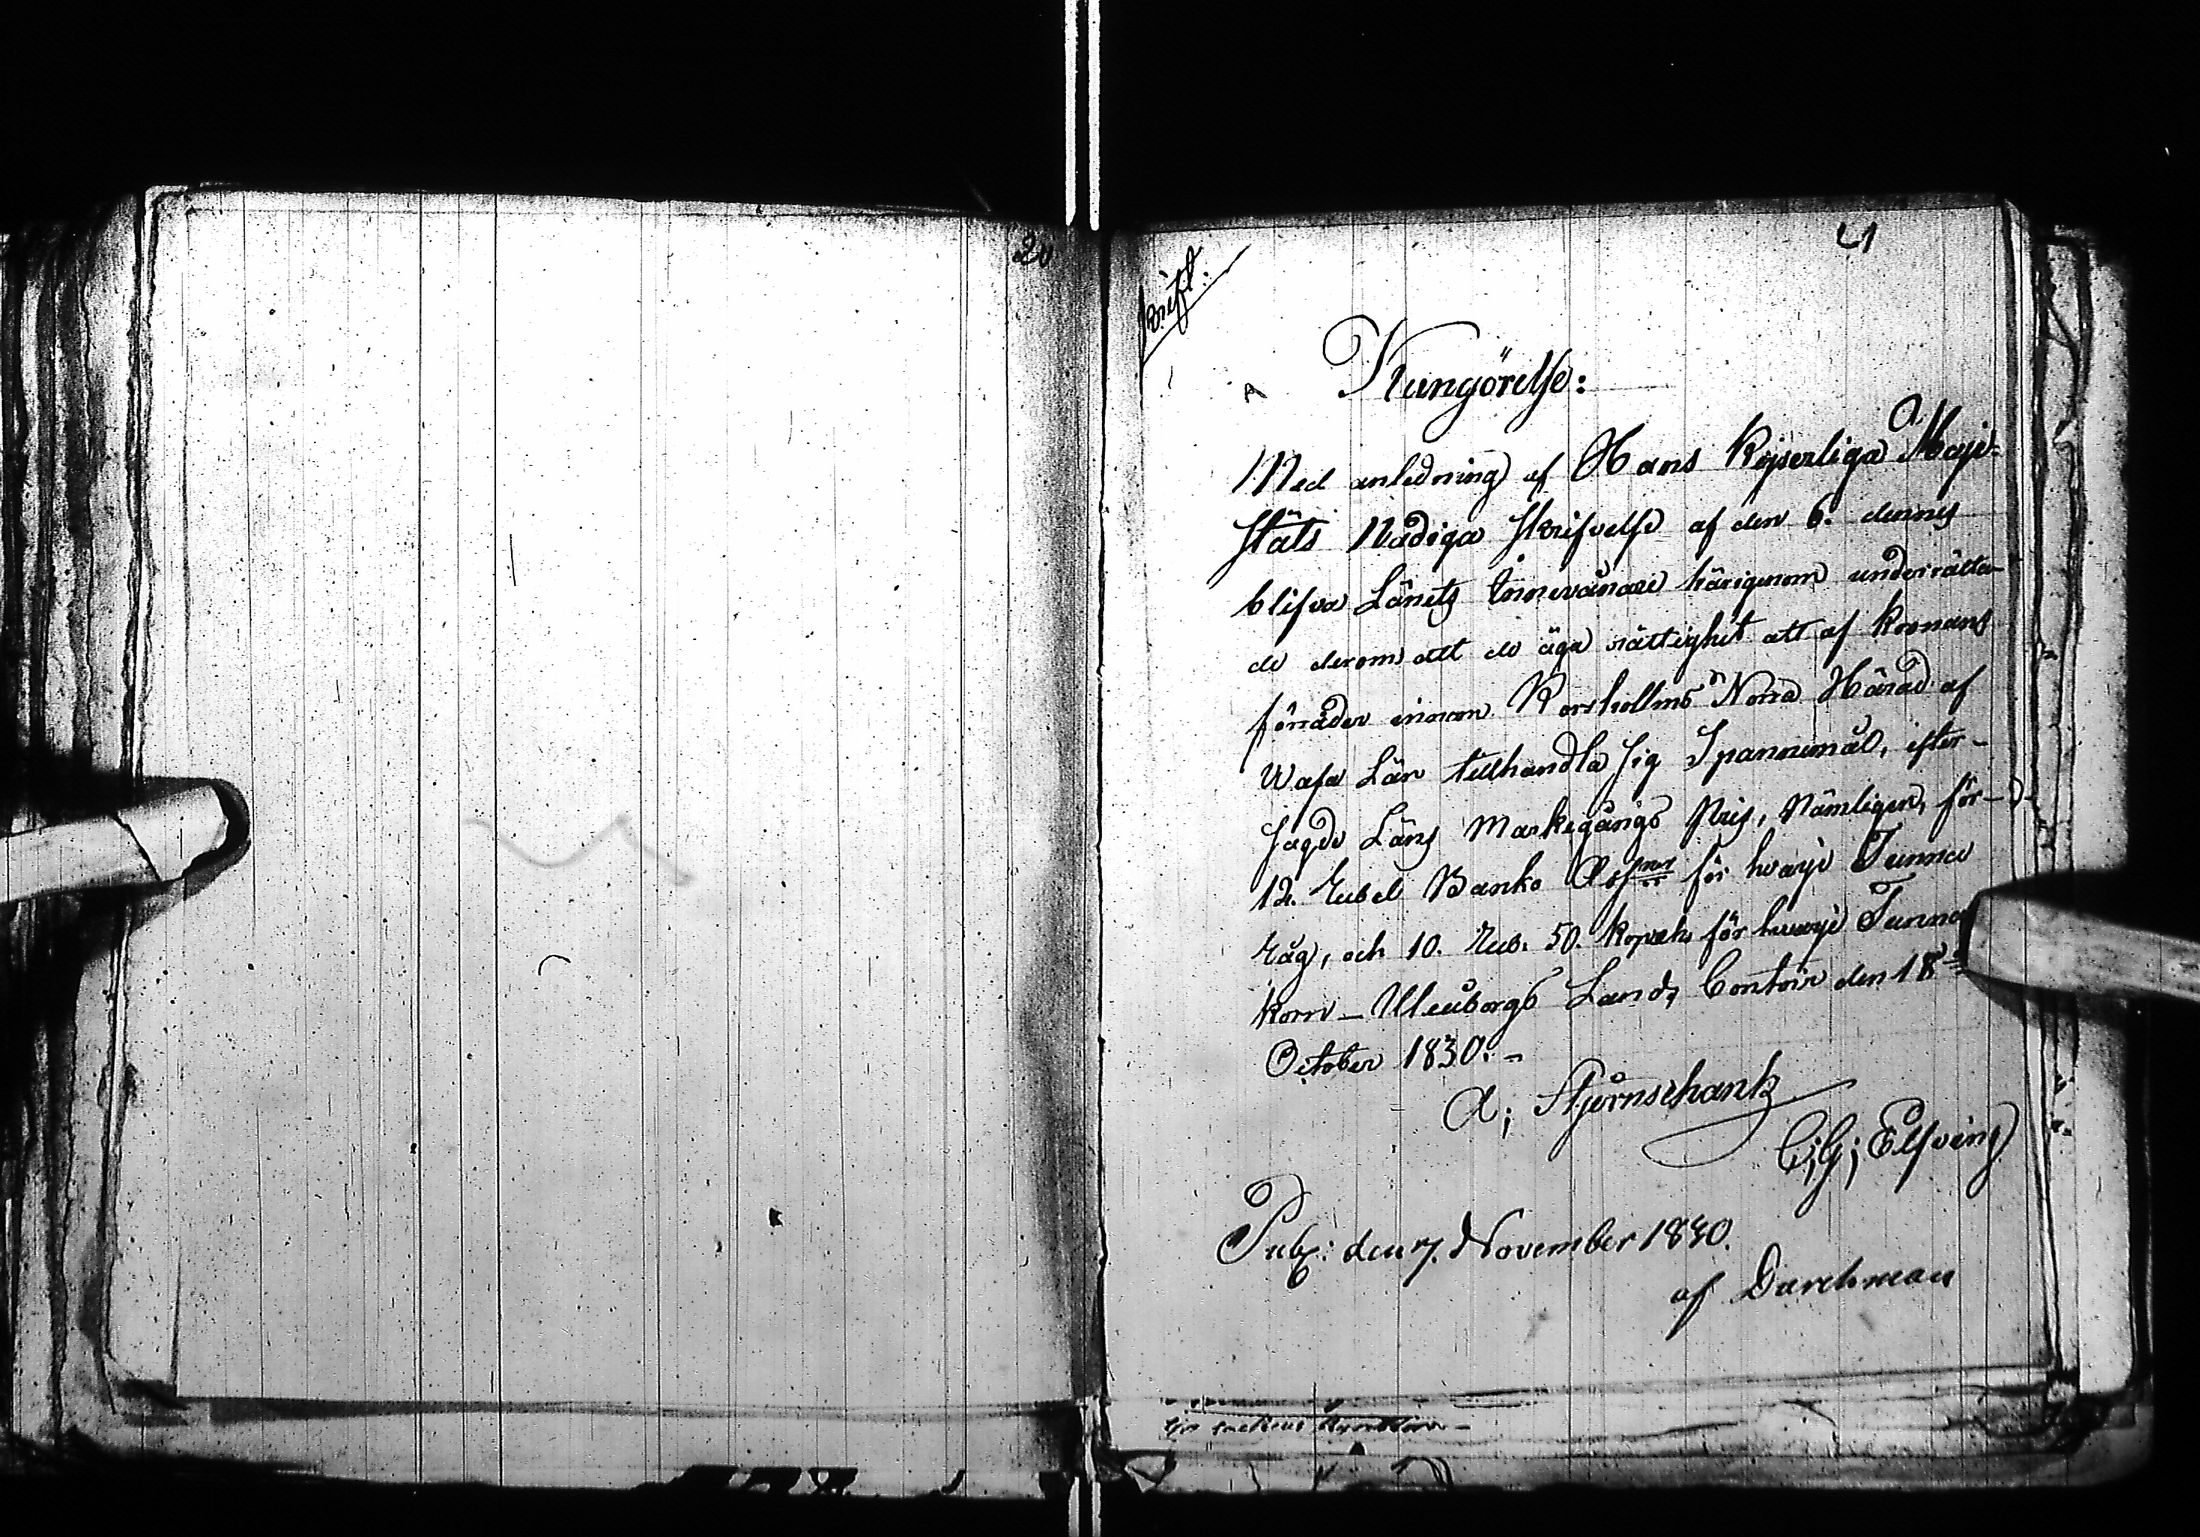 20
21
skrift:
Kungörelse:
Med anledning af Hans Kejserliga Maje-
stäts Nådiga skrifvelse af den 6. dennes
blifva Länets Innevånare härigenom underrätta-
de derom att de äga rättighet att af Kronans
förråder innom Korsholms Norra Härad af
Wasa Län tillhandla sig Spannemål, efter
sagde Läns Markegångs Pris, Nämligen, för
12. Rubel Banko Ass:ner för hvarje Tunna
Råg, och 10. Rub. 50. Kopek för hvarje Tunna
Korn – Uleåborgs Lands Contoir den 18
October 1830. –
A; Stjernschantz
C; G; Elfving
Publ: den 7. November 1830.
af